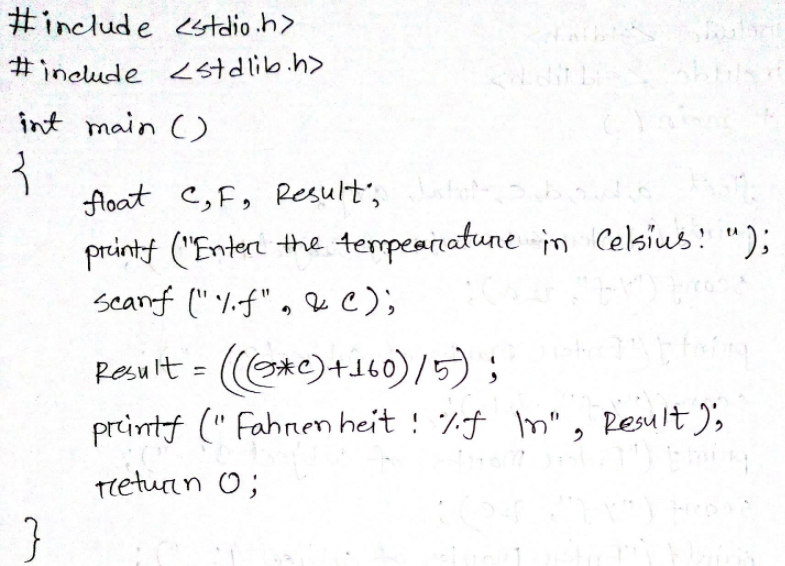 #include <stdio.h>
#include <stdlib.h>
int main ()
{
float C, F, Result;
printf ("Enter the tempearature in Celsius: ");
scanf ("%f", & C);
Result = (((9*C)+160)/5);
printf ("Fahrenheit : %f \n", Result);
return 0;
}